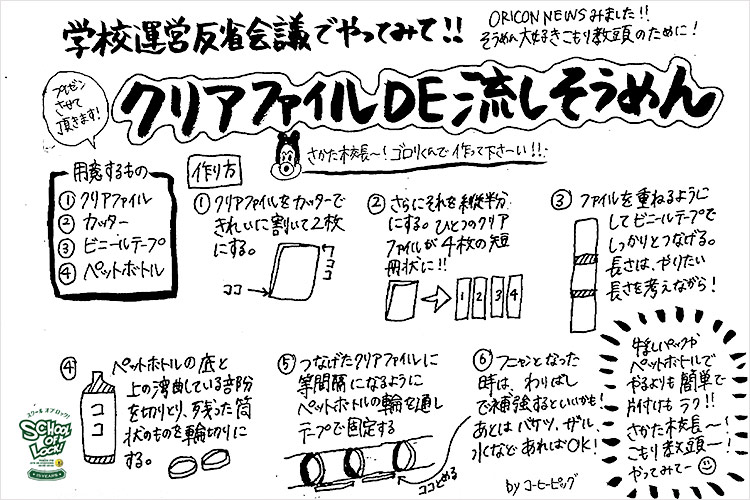 学校運営反省会議でやってみて!!
ORICON NEWSみました!!
そうめん大好きこもり教頭のために!
プレゼン
させて
頂きます!
クリアファイルDE流しそうめん
さかた校長〜!ゴロリくんで作って下さ〜い!!
用意するもの
① クリアファイル
② カッター
③ ビニールテープ
④ ペットボトル
作り方
① クリアファイルをカッターで
きれいに割いて2枚
にする。
ココ
ココ
② さらにそれを縦半分
にする。ひとつのクリア
ファイルが4枚の短
冊状に!!
1 2 3 4
③ ファイルを重ねるように
してビニールテープで
しっかりとつなげる。
長さは、やりたい
長さを考えながら!
④ ペットボトルの底と
上の湾曲している部分
を切りとり、残った筒
状のものを輪切りに
する。
ココ
⑤ つなげたクリアファイルに
等間隔になるように
ペットボトルの輪を通し
テープで固定する
ココとめる
⑥ フニャンとなった
時は、わりばし
で補強するといいかも!
あとはバケツ、ザル、
水などあればOK!
牛乳パックや
ペットボトルで
やるよりも簡単で
片付けもラク!!
さかた校長〜!
こもり教頭〜!
やってみて〜
by コーヒーピッグ
スクールオブロック!
SCHOOL
OF
LOCK!